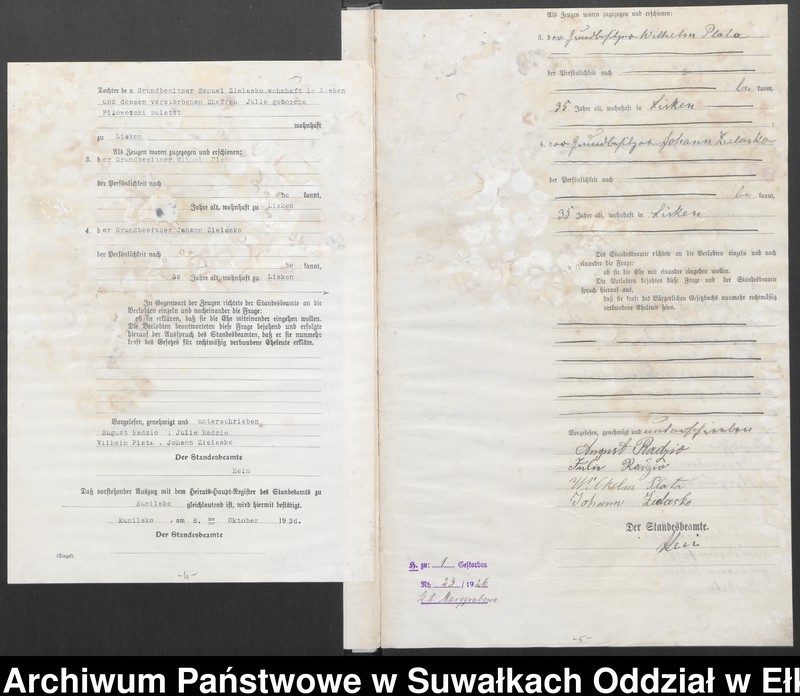 Tochter des Grundbesitzer Samuel Zielasko wohnhaft in Lisken
und dessen verstorbenen Ehefrau Julie geborene
zuletzt
wohnhaft
zu Lisken
Als Zeugen waren zugezogen und erschienen:
3. der Grundbesitzer Wilhelm Plata
der Persönlichkeit nach
be kannt,
Jahre alt, wohnhaft zu Lisken
4. der Grundbesitzer Johann Zielasko
der Persönlichkeit nach
be kannt,
Jahre alt, wohnhaft zu Lisken
In Gegenwart der Zeugen richtete der Standesbeamte an die
Verlobten einzeln und nacheinander die Frage:
ob sie erklären, daß sie die Ehe miteinander eingehen wollen.
Die Verlobten beantworteten diese Frage bejahend und erfolgte
hierauf der Ausspruch des Standesbeamten, daß er sie nunmehr
kraft des Gesetzes für rechtmäßig verbundene Eheleute erkläre.
Vorgelesen, genehmigt und unterschrieben
August Radzio ; Julie Radzio
Wilhelm Plata . Johann Zielasko
Der Standesbeamte
Hein
Daß vorstehender Auszug mit dem Heirats-Haupt-Register des Standesamts zu
Kunilsko gleichlautend ist, wird hiermit bestätigt.
Kunilsko , am 6. ten Oktober 1936.
Der Standesbeamte
(Siegel)
-4-
Als Zeugen waren zugezogen und erschienen:
3. der Grundbesitzer Wilhelm Plata
der Persönlichkeit nach
be kannt,
35 Jahre alt, wohnhaft in Lisken
;
4. der Grundbesitzer Johann Zielasko
der Persönlichkeit nach
be kannt,
35 Jahre alt, wohnhaft in Lisken
Der Standesbeamte richtete an die Verlobten einzeln und nach
einander die Frage:
ob sie die Ehe mit einander eingehen wollen.
Die Verlobten bejahten diese Frage und der Standesbeamte
sprach hierauf aus,
daß sie kraft des Bürgerlichen Gesetzbuchs nunmehr rechtmäßig
verbundene Eheleute seien.
Vorgelesen, genehmigt und unterschrieben
August Radzio
Julie Radzio
Wilhelm Plata
Johann Zielasko
Der Standesbeamte.
Hein
H. zu: 1 Gestorben
Nr. 23 / 1926
St. A. Marggrabowa
-5-
Archiwum Państwowe w Suwałkach Oddział w Eł